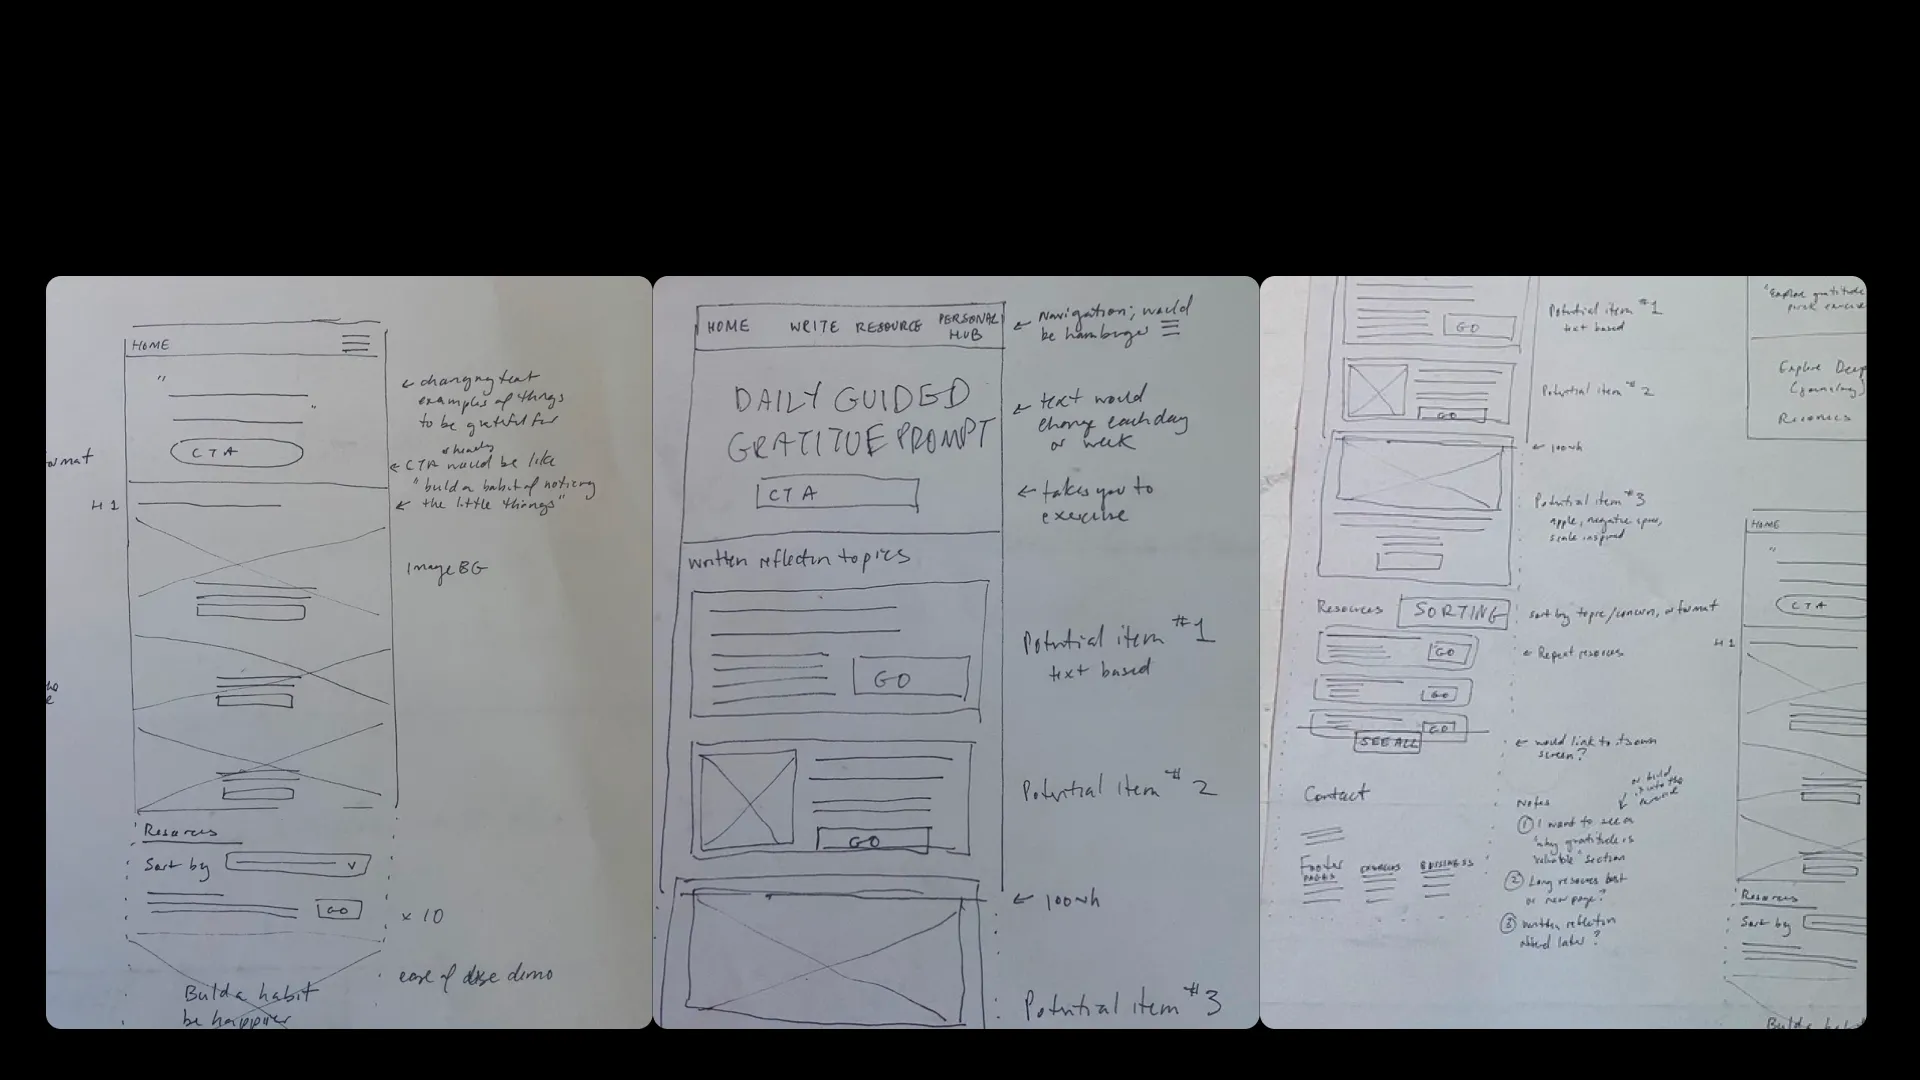 HOME
"
"
CTA
ormat
H1
← changing text
examples of things
to be grateful for
or heading
← CTA would be like
"build a habit of noticing
← the little things"
Image BG
Resources
Sort by
GO
x 10
ease of use demo
Build a habit
be happier
HOME WRITE RESOURCE PERSONAL HUB
← Navigation; would
be hamburger
DAILY GUIDED
GRATITUE PROMPT
← text would
change each day
or week
CTA
← takes you to
exercise
written reflection topics
GO
Potential item #1
text based
GO
Potential item # 2
← 100wh
Potential item #3
GO
Potential item #1
text based
GO
Potential item # 2
← 100wh
Potential item #3
apple, negative space,
scale inspired
Resources SORTING
sort by topic/concern, or format
GO
← Repeat resources
GO
GO
SEE ALL
← would link to its own
screen?
Contact
Footer
PAGES
BUSINESS
Notes
or build
into the
① I want to see a
"why gratitude is
valuable" section
② Long resources list
or new page?
③ written reflection
added later?
"Explore gratitude
Explore Deep
Resources
HOME
"
CTA
H1
Resources
Sort by